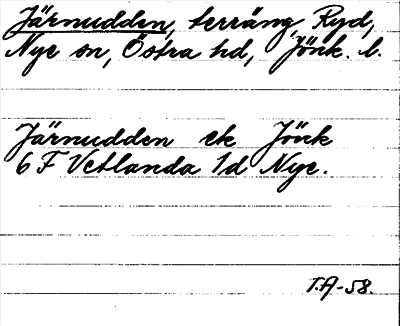 Järnudden, terräng, Ryd,
Nye sn, Östra hd, Jönk. l.
Järnudden ek Jönk
6 F Vetlanda 1d Nye.
T.A-58.